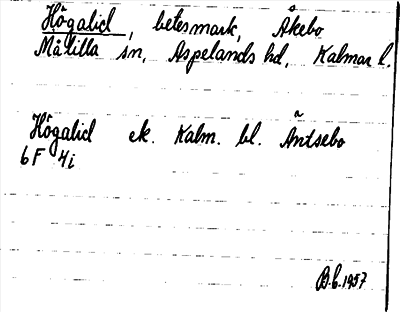 Högalid, betesmark, Åkebo
Målilla sn, Aspelands hd, Kalmar l.
Högalid ek. Kalm. bl. Äntsebo
6F 4i
B.b.1957